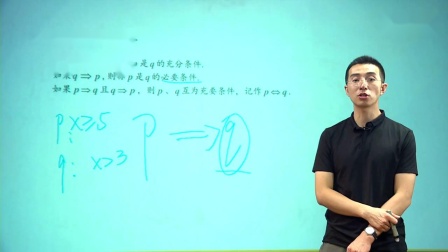 p是q的充分条件.
如果q⇒p,则称p是q的必要条件.
如果p⇒q且q⇒p,则p、q互为充要条件,记作p⇔q.
p: x≥5 p ⇒ q
q: x>3